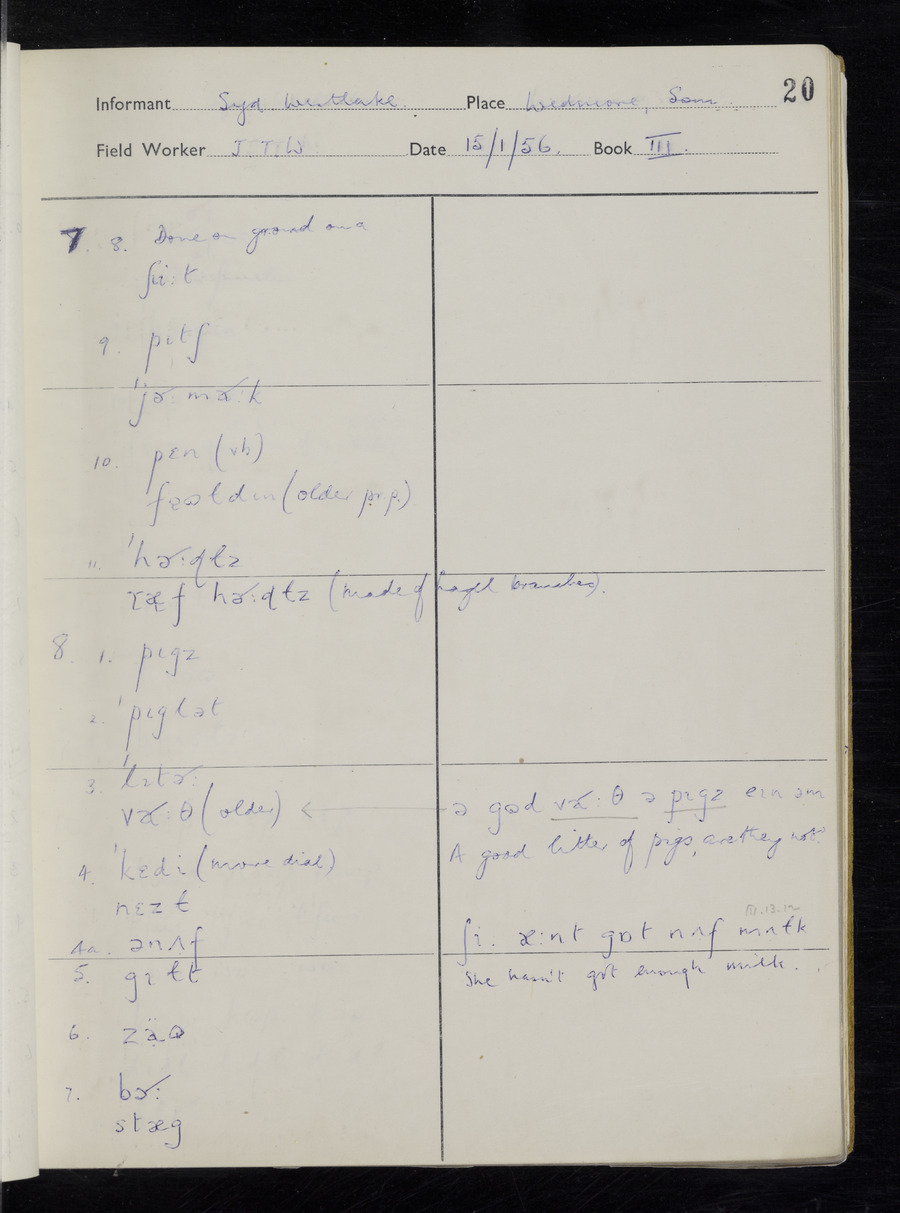 20
Informant Syd Westlake Place Wedmore, Som
Field Worker J.T.W Date 15/1/56. Book III.
7. 8. Done on ground on a
ʃiːt
9. pɪtʃ
ˈjɚːmɑ˞ːk
10. pɛn (vb)
(older pr.p.)
11. ˈhɚːdɫz
ræf hɚːdɫz (made of hazel branches).
8. 1. pɪgz
2. ˈpɪglət
3. ˈlɪtɚː
vɑ˞ːθ (older) ← ə gəd vɑ˞ːθ ə pɪgz eɪn əm
A good litter of pigs, are they not?
4. ˈkɛdi (more dial)
nɛzɫ
III.13.12
4a. ənʌf ʃi. æːnt gɒt nʌf mɪɫk
5. gɪɫt She hasn't got enough milk.
6. zäɒ
7. bɚː
stæg